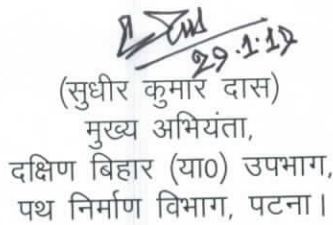 29.1.17
(सुधीर कुमार दास)
मुख्य अभियंता,
दक्षिण बिहार (या0) उपभाग,
पथ निर्माण विभाग, पटना।